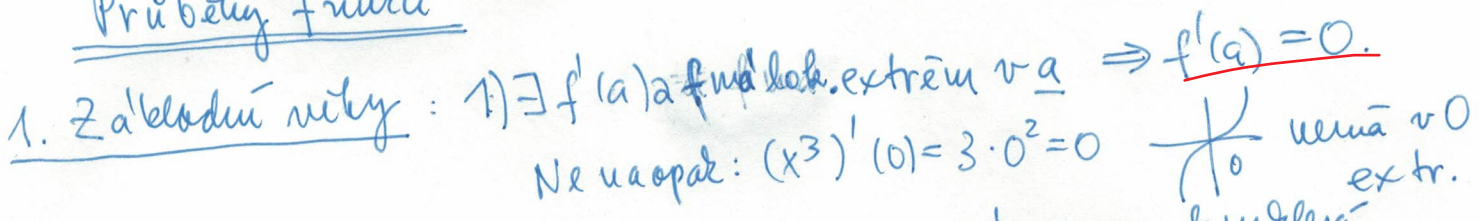 Průběhy funkcí
1. Základní věty : 1) ∃ f'(a) a f má lok. extrém v a ⇒ f'(a) = 0.
Ne naopak: (x³)'(0) = 3·0² = 0 0 nemá v 0
extr.